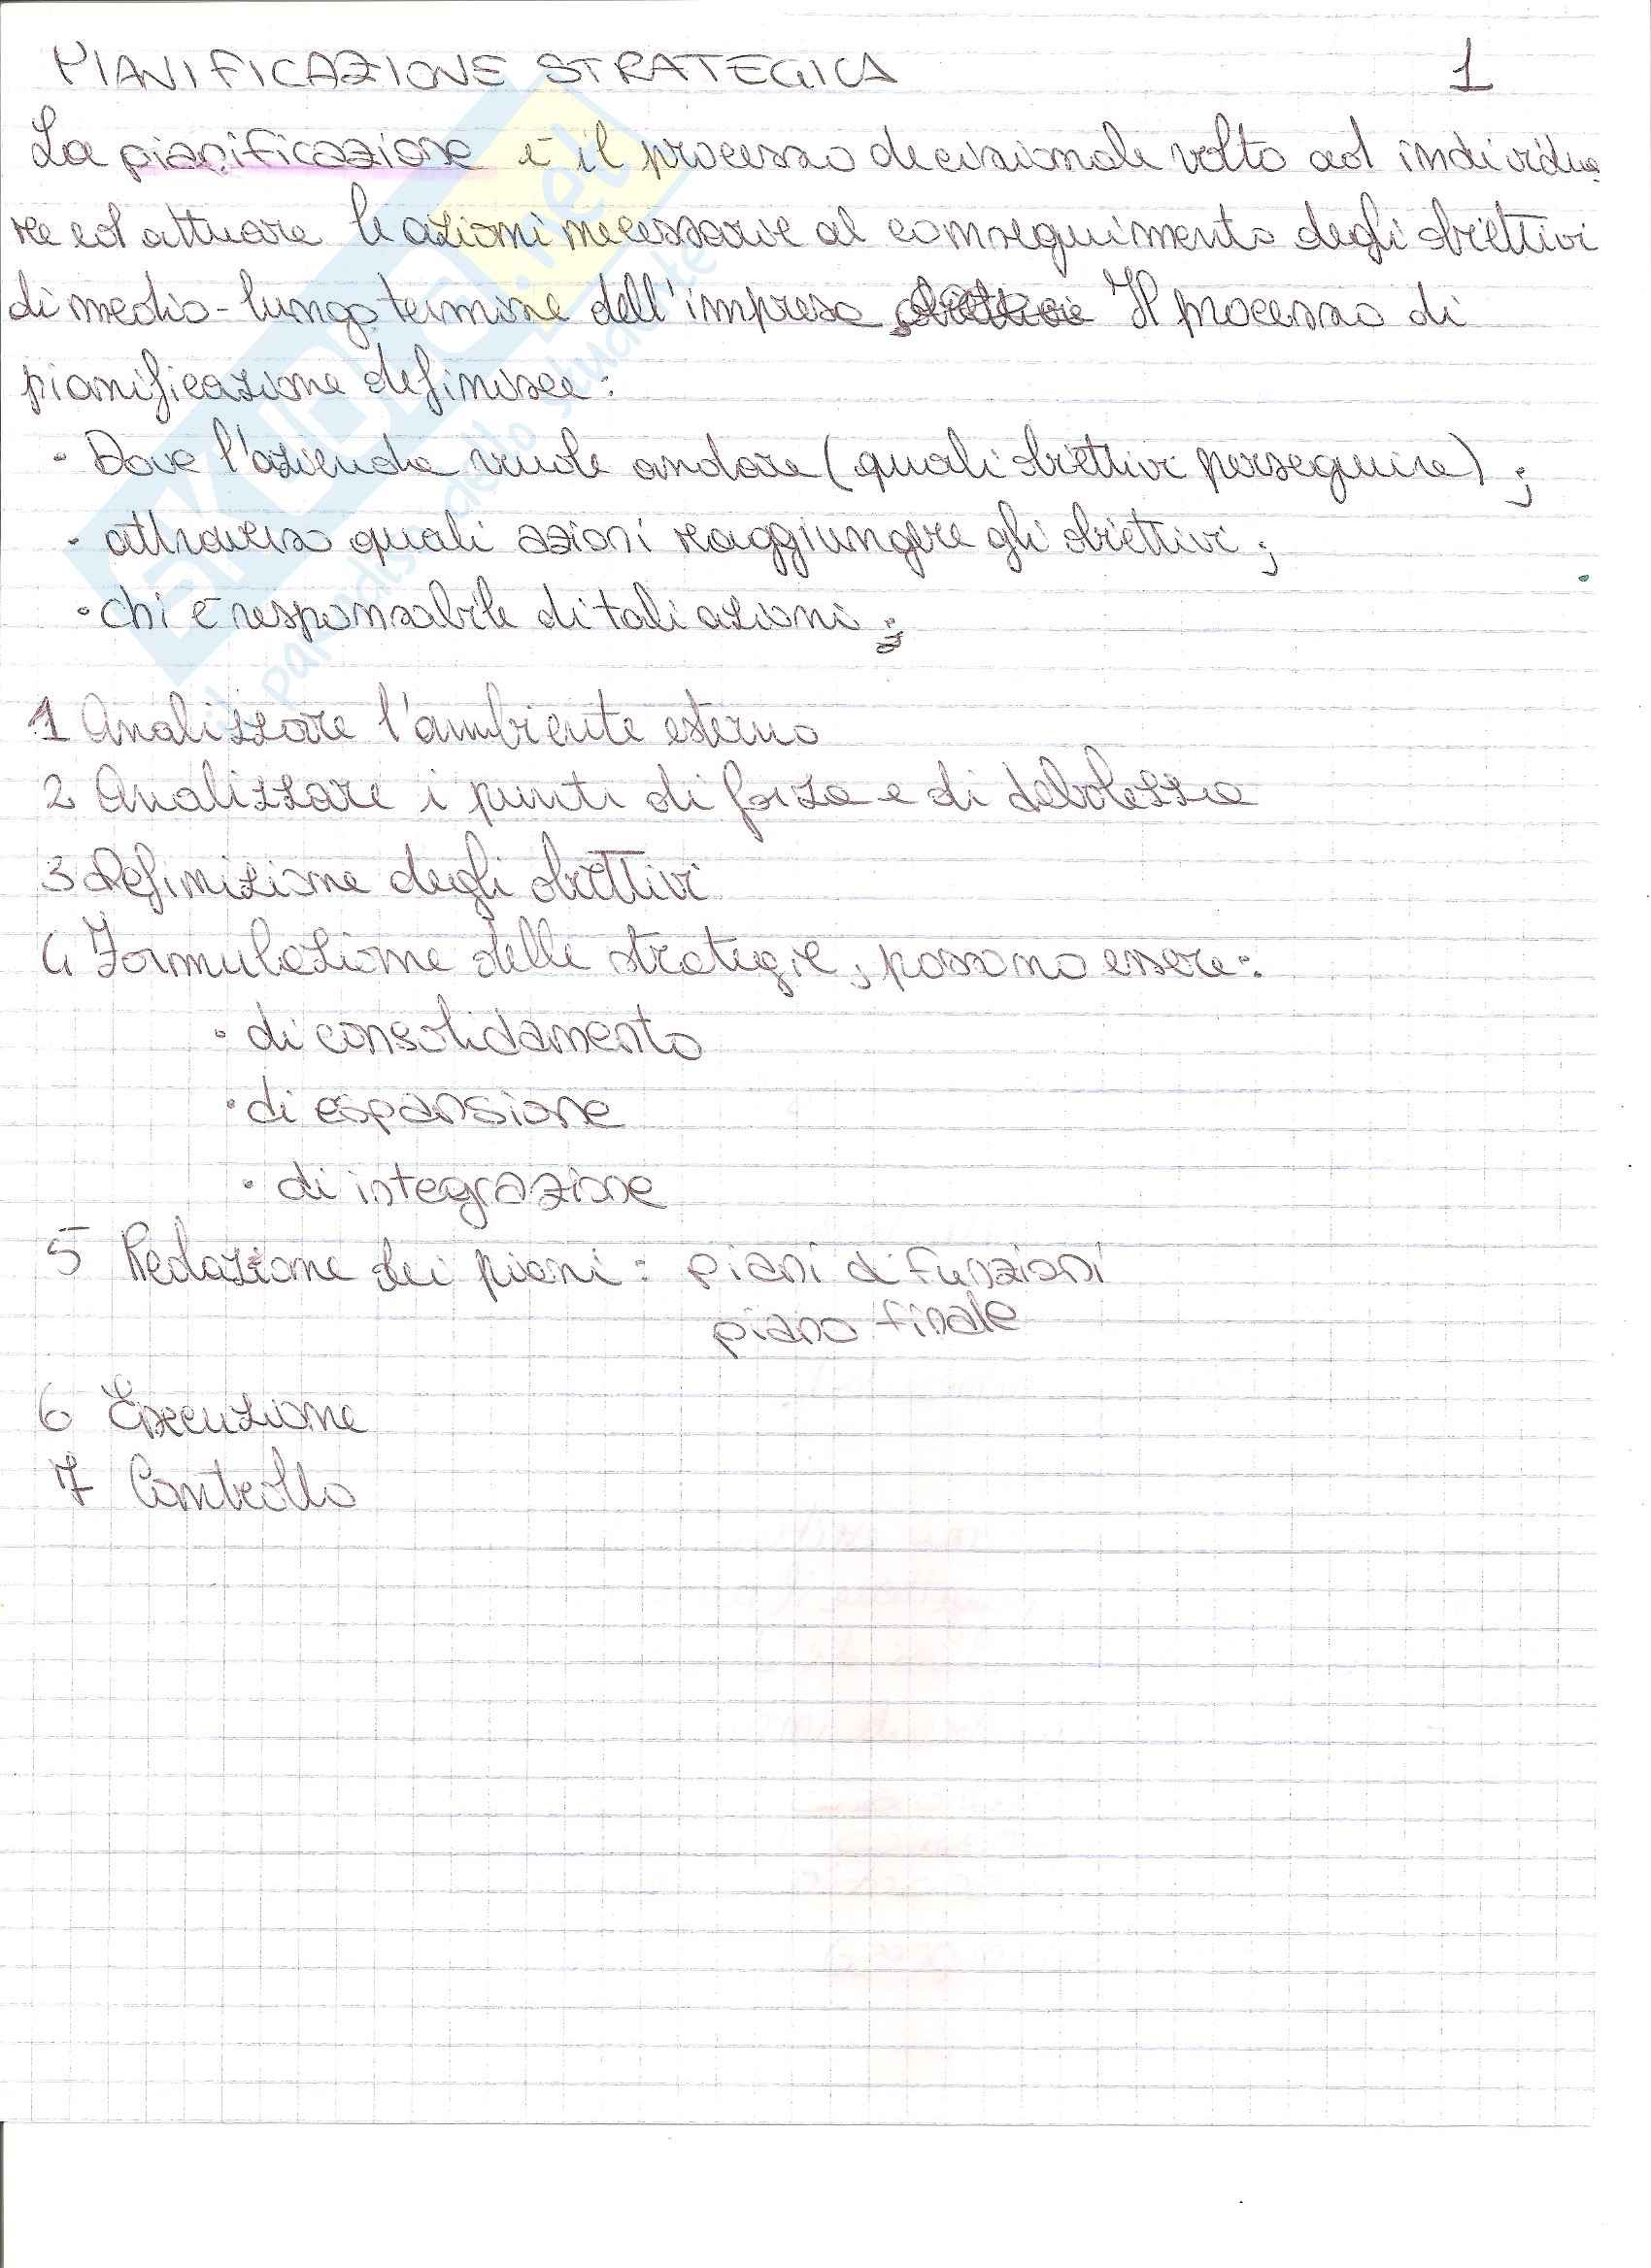 PIANIFICAZIONE STRATEGICA 1
La pianificazione è il processo decisionale volto ad individua
re ed attuare le azioni necessarie al conseguimento degli obiettivi
di medio-lungo termine dell'impresa Il processo di
pianificazione definisce:
• Dove l'azienda vuole andare (quali obiettivi perseguire);
• attraverso quali azioni raggiungere gli obiettivi;
• chi è responsabile di tali azioni;
1 Analizzare l'ambiente esterno
2 Analizzare i punti di forza e di debolezza
3 Definizione degli obiettivi
4 Formulazione delle strategie, possono essere:
• di consolidamento
• di espansione
• di integrazione
5 Redazione dei piani: piani di funzioni
piano finale
6 Esecuzione
7 Controllo
SKUOLA.net
il paradiso dello studente